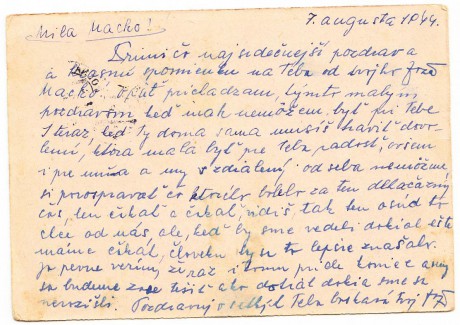 Milá Macko!
7. augusta 1944.
Primi čo najsrdečnejší pozdrav a
a krásnu spomienku na Teba od svojho
Macko. Opäť prichádzam, týmto malým
pozdravom keď inak nemôžem, byť pri Tebe
teraz, keď ty doma sama musíš tráviť dovo-
lenú, ktorá malá byť pre Teba radosť, ovšem
i pre mňa a my vzdialený od seba nemôžeme
si porozprávať čo ktorého bolelo za ten
čas, len čakať a čakať, vidíš, tak ten osud to
chce od nás ale, keď by sme vedeli dokiaľ ešte
máme čakať, človeku by sa to lepšie znášalo.
Ja pevne verím že raz i tomu príde koniec a my
sa budeme zase tešiť ako dotiaľ dokia sme sa
nerozišli. Pozdravuj všetkých Teba bozkáva Tvoj